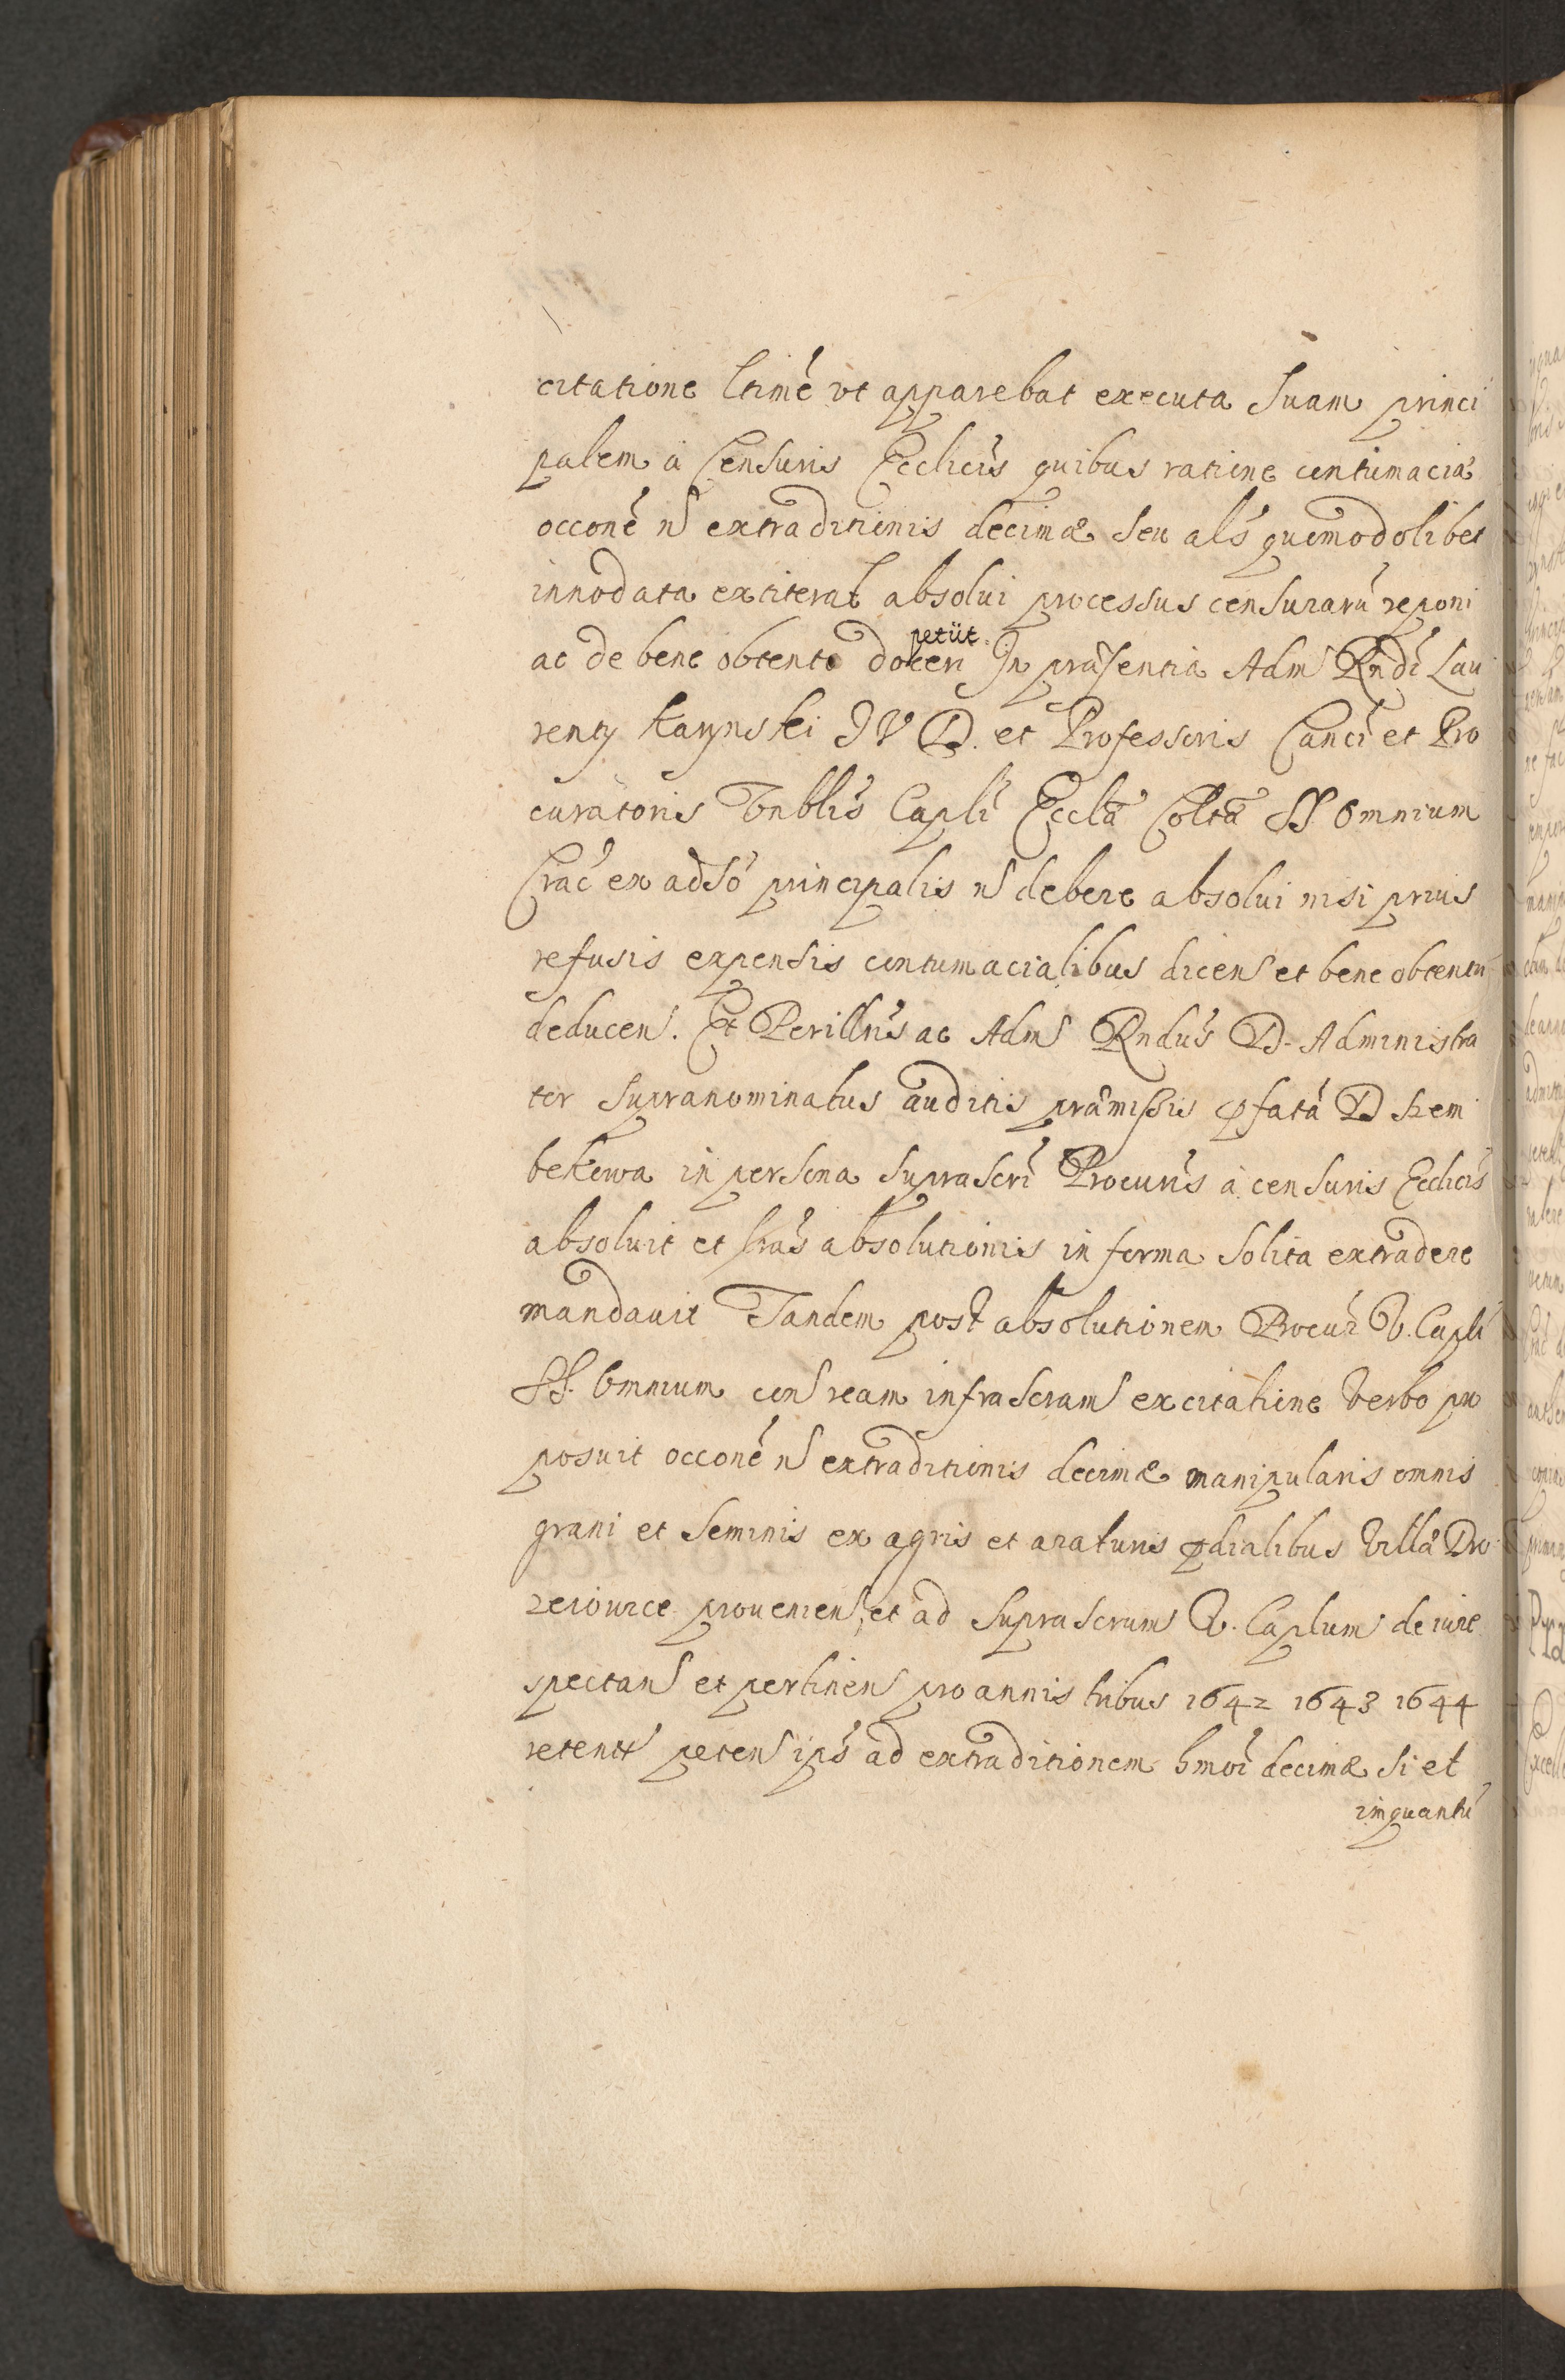 citatione ltimé vt apparebat executa Suam princi
palem à Censuris Ecclicis quibus ratione contumaciæ
occoné ñ extraditionis decimæ Seu als quomodolibet
innodata extiterat absolui processus censurarũ reponi
petiit
ac de bene obtento doceri In præsentia Adm Rndi Lau
rentÿ Karynski I V D. et Professoris Canci et Pro
curatoris Vnblis Capli Ecclæ Coltæ SS Omnium
Crac ex adso principalis ñ debere absolui nisi prius
refusis expensis contumacialibus dicens et bene obtentũ
deducens. Et Perillris ac Adm Rndus D. Administra
tor Supranominatus auditis præmissis pfatã D Szem
bekowa in persona Suprascri Procuris à censuris Ecclicis
absoluit et lras absolutionis in forma Solita extradere
mandauit Tandem post absolutionem Procur V. Capli
SS. Omnium con ream infrascram ex citatione Verbo pro
posuit occoné ñ extraditionis decimæ manipularis omnis
grani et Seminis ex agris et araturis pdialibus Villæ Dro
zeiowice prouenien et ad Suprascrum V. Caplum de iure
spectan et pertinen pro annis tribus 1642 1643 1644
retent peten ips ad extraditionem hmoi decimæ Si et
inquantũ